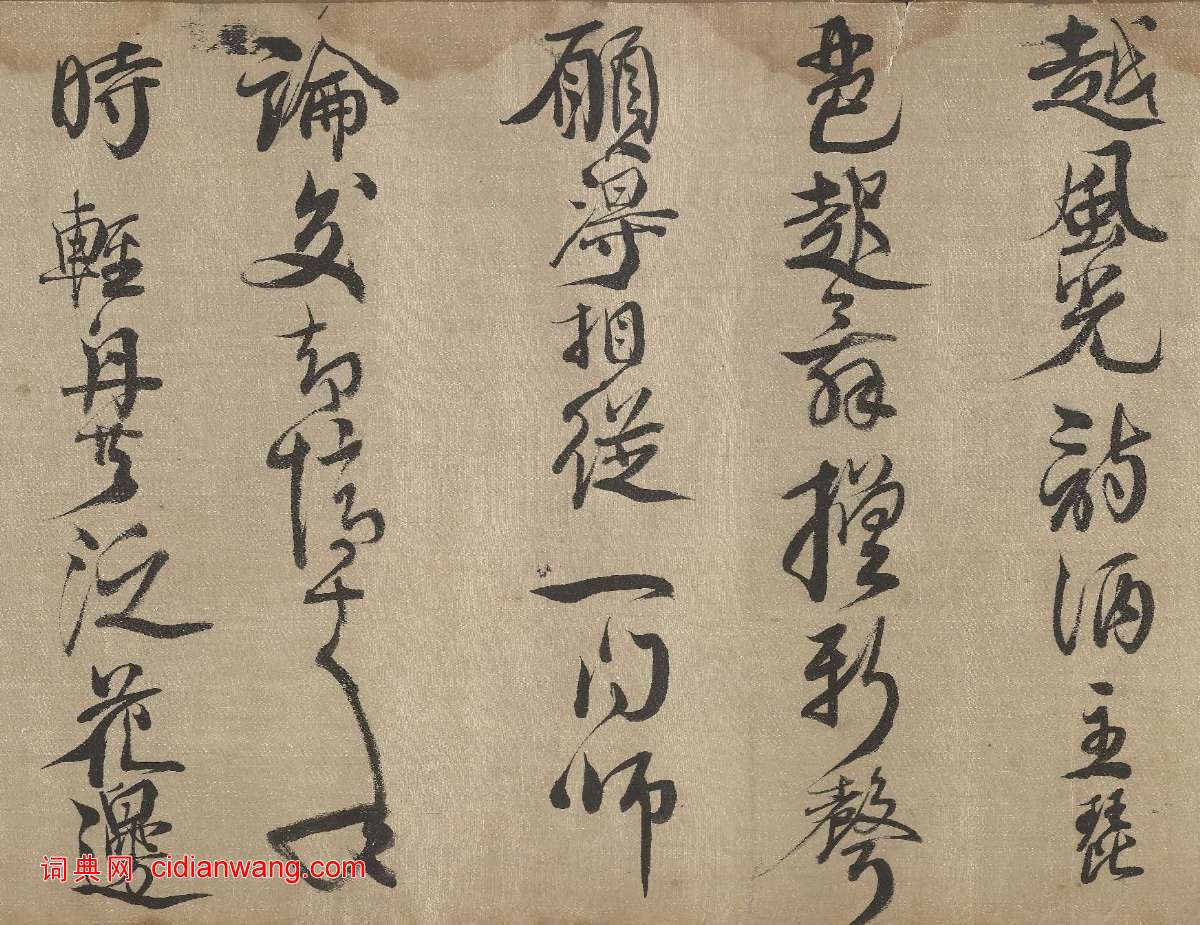 越風光詩酒主琵
琶起舞新聲
願得相從一問師
論交却憶十年
時輕舟共泛花邊
词典网 cidianwang.com